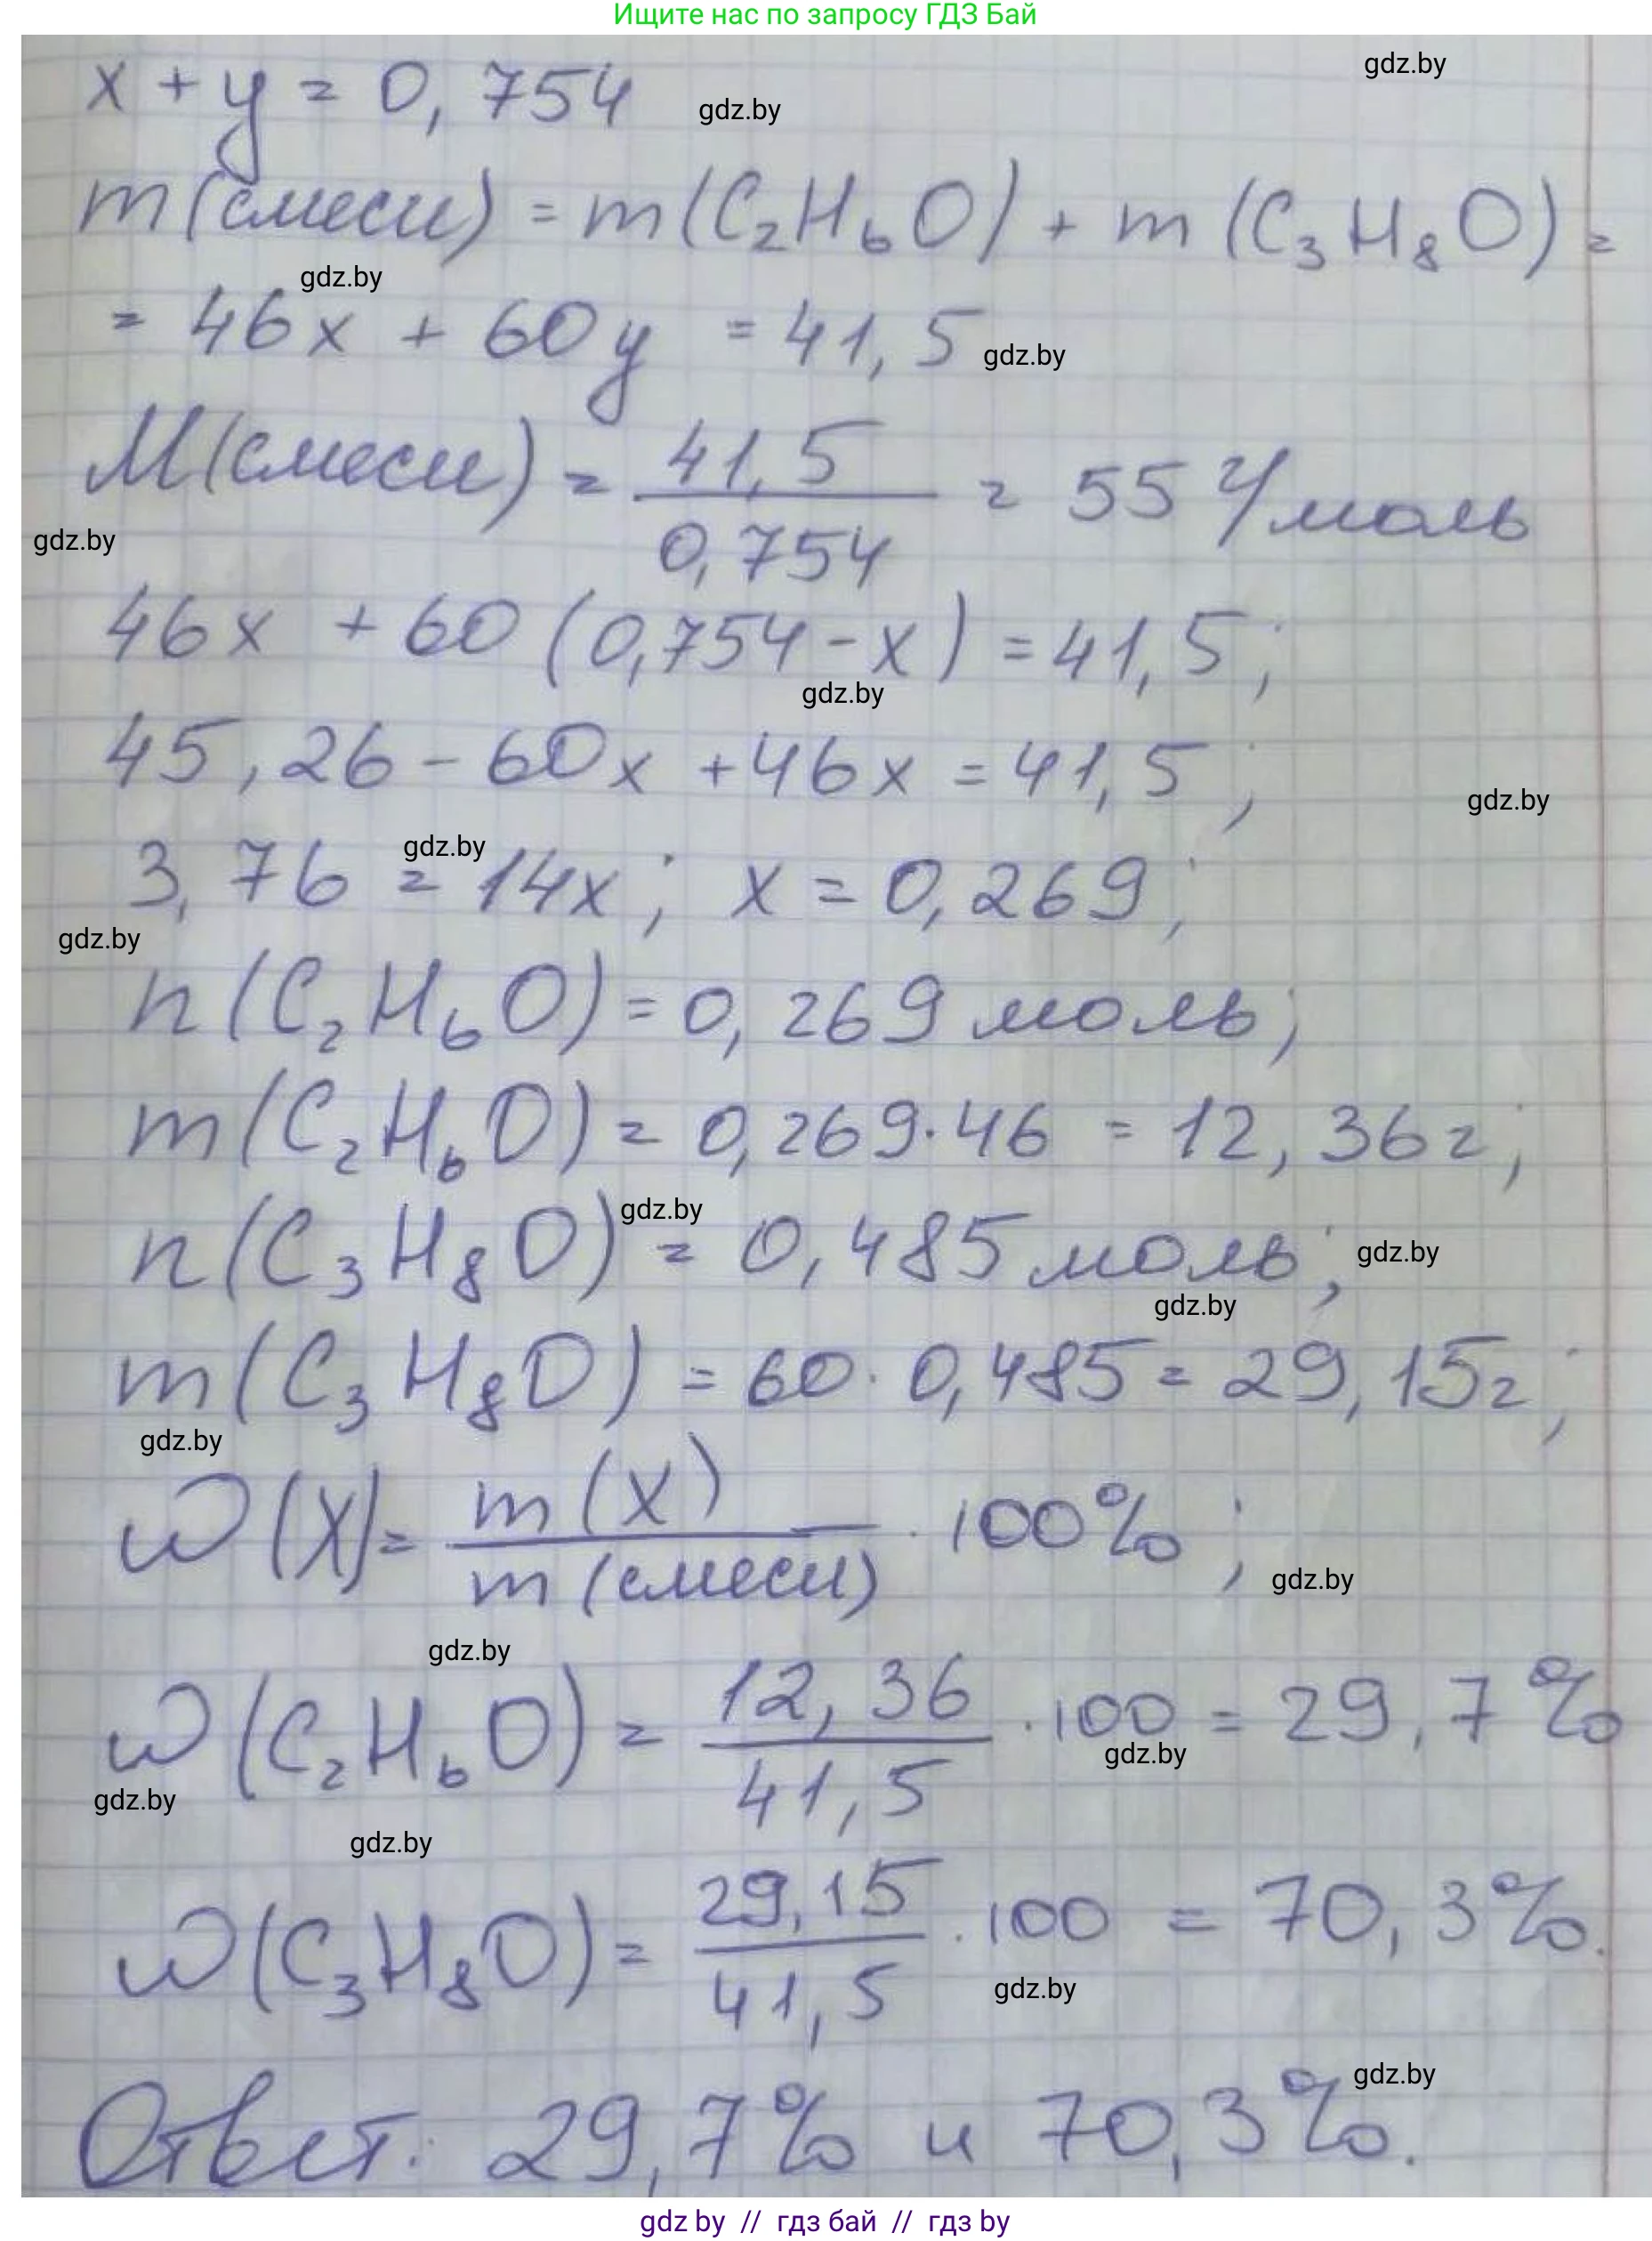 Ищите нас по запросу ГДЗ Бай
gdz.by
x + y = 0,754 gdz.by
m(смеси) = m(C₂H₆O) + m(C₃H₈O) =
gdz.by
= 46x + 60y = 41,5 gdz.by
M(смеси) = 41,5 / 0,754 = 55 г/моль
gdz.by
46x + 60(0,754 - x) = 41,5;
gdz.by
45,26 - 60x + 46x = 41,5;
gdz.by
gdz.by
3,76 = 14x; x = 0,269;
gdz.by
n(C₂H₆O) = 0,269 моль;
m(C₂H₆O) = 0,269·46 = 12,36 г;
gdz.by
n(C₃H₈O) = 0,485 моль; gdz.by
gdz.by
m(C₃H₈O) = 60·0,485 = 29,15 г;
gdz.by
w(X) = m(X) / m(смеси) · 100%;
gdz.by
gdz.by
w(C₂H₆O) = 12,36 / 41,5 · 100 = 29,7%
gdz.by
gdz.by
gdz.by
w(C₃H₈O) = 29,15 / 41,5 · 100 = 70,3%.
gdz.by
gdz.by
Ответ: 29,7% и 70,3%.
gdz by // гдз бай // гдз by